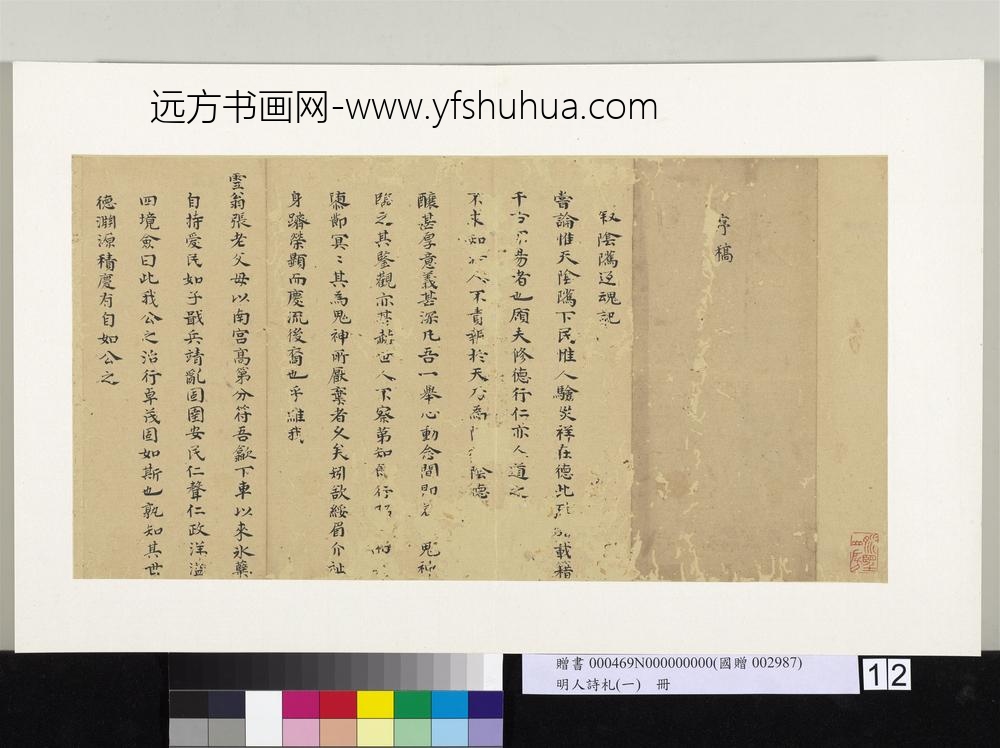 远方书画网-www.yfshuhua.com
序稿
叙陰隲返魂記
嘗論惟天陰隲下民惟人驗災祥在德此 載稽
千古 易者也顧夫修德行仁亦人道之
不求知於人不責報於天 為 陰德
釀甚厚意義甚深凡吾一舉心動念間即 鬼神
臨之其鑒觀亦甚 世人不察第知 行
墮節冥〻其為鬼神所厭棄者久矣矧欲綏眉介祉
身躋榮顯而慶流後裔也乎維我
雲翁張老父母以南宮高第分符吾歙下車以來氷蘗
自持愛民如子戢兵靖亂固圉安民仁聲仁政洋溢
四境僉曰此我公之治行卓茂固如斯也孰知其世
德淵源積慶有自如公之
贈書 000469N000000000(國贈 002987)
明人詩札(一) 冊
12